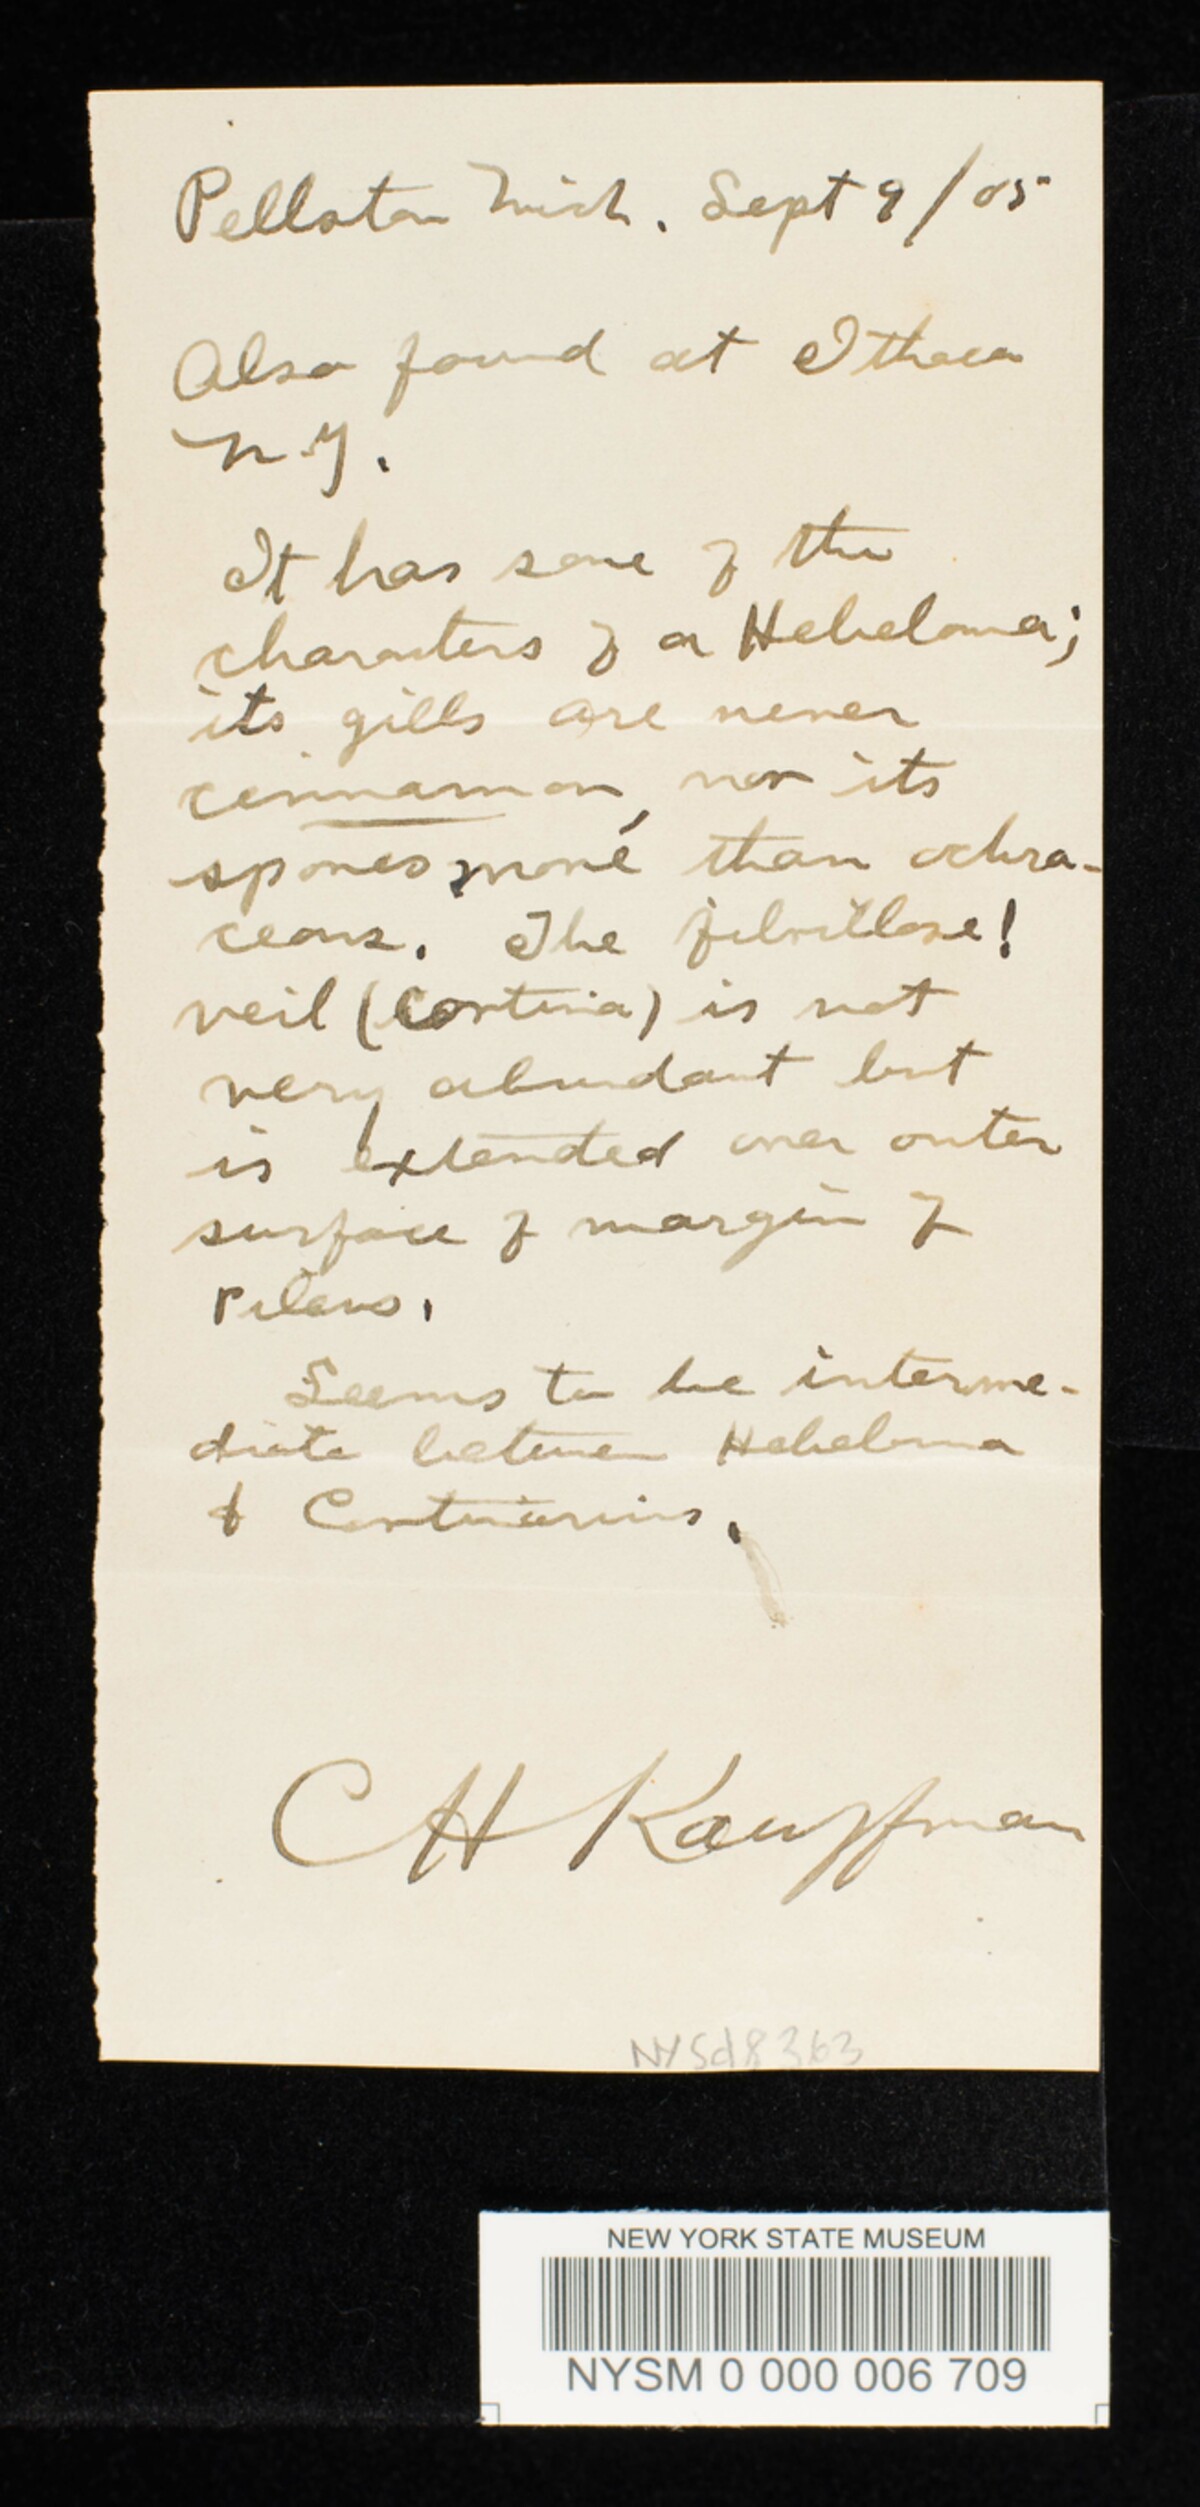 Pellston Mich. Sept 9/05
Also found at Ithaca
N.Y.
It has some of the
characters of a Hebeloma;
its gills are never
cinnamon, nor its
spores more than ochra-
ceous. The fibrillose!
veil (Cortina) is not
very abundant but
is extended over outer
surface of margin of
Pileus.
Seems to be interme-
diate between Hebeloma
& Cortinarius.
CH Kauffman
NYSd8363
NEW YORK STATE MUSEUM
NYSM 0 000 006 709